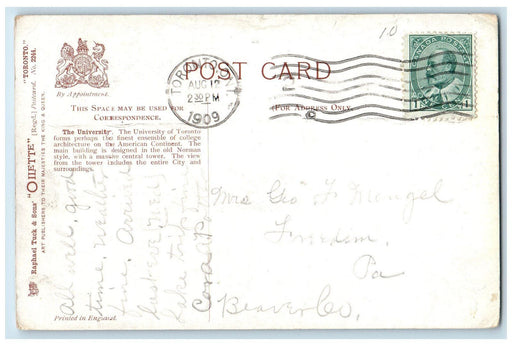 10
POST CARD
By Appointment.
TORONTO
AUG 12
2 30 PM
1909
CANADA POSTAGE
THIS SPACE MAY BE USED FOR
CORRESPONDENCE.
(FOR ADDRESS ONLY.
The University. The University of Toronto
forms perhaps the finest ensemble of college
architecture on the American Continent. The
main building is designed in the old Norman
style, with a massive central tower. The view
from the tower includes the entire City and
surroundings.
All well, good
time, weather
fine. Arrived
last eve. Will
take trip
Cora
Mrs Geo F Mengel
Freedom,
Pa
Beaver Co.
Printed in England.
"TORONTO."
Raphael Tuck & Sons' "OILETTE" [Regd.] Postcard. No. 2244.
ART PUBLISHERS TO THEIR MAJESTIES THE KING & QUEEN.